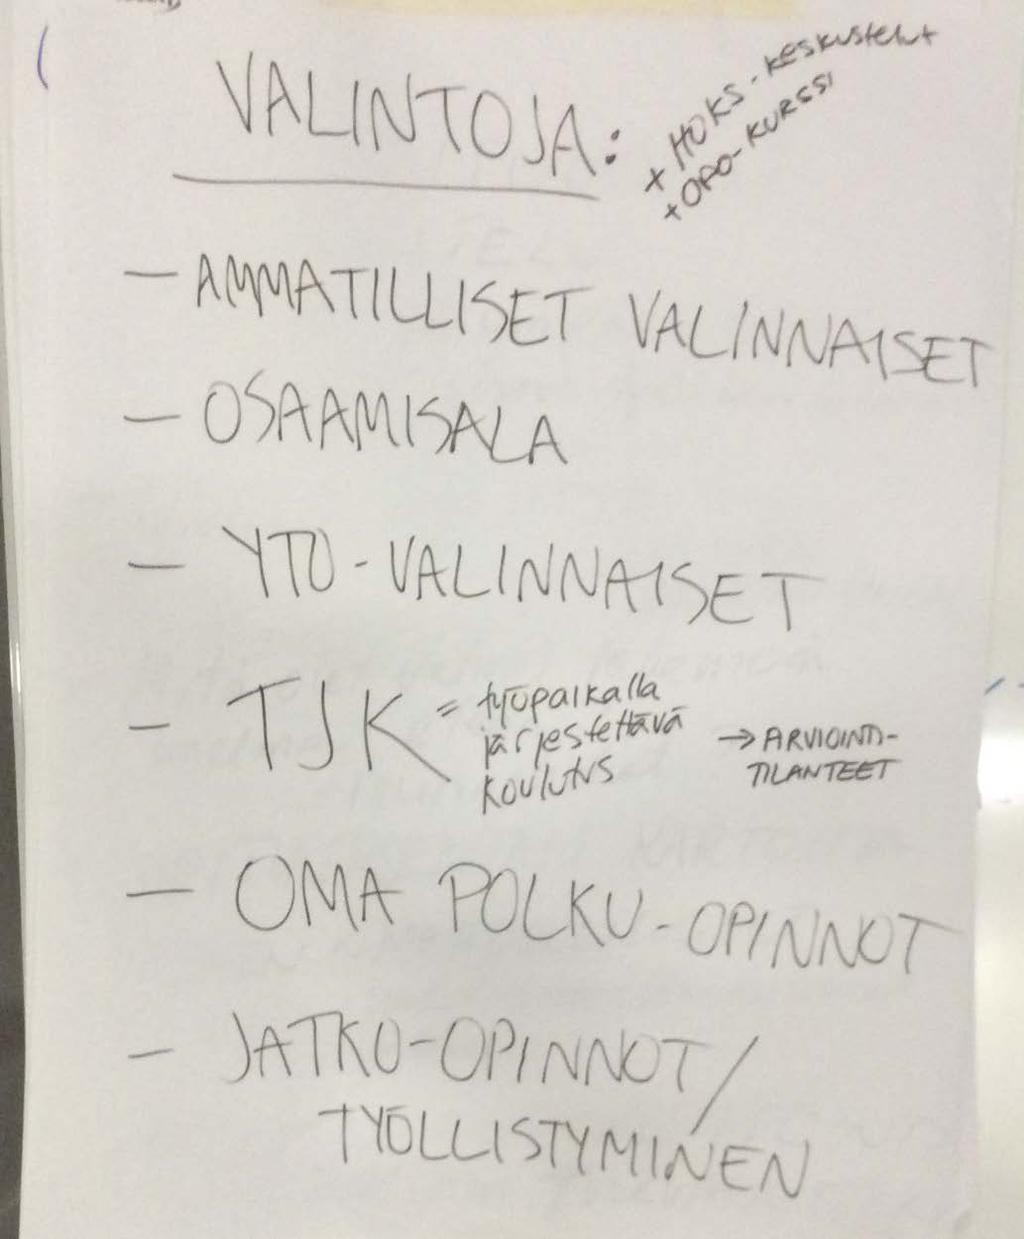 VALINTOJA:
+ HOKS-KESKUSTELUT
+ OPO-KURSSI
— AMMATILLISET VALINNAISET
— OSAAMISALA
— YTO-VALINNAISET
- TJK = työpaikalla
järjestettävä
koulutus
→ ARVIOINTI-
TILANTEET
— OMA POLKU-OPINNOT
— JATKO-OPINNOT/
TYÖLLISTYMINEN